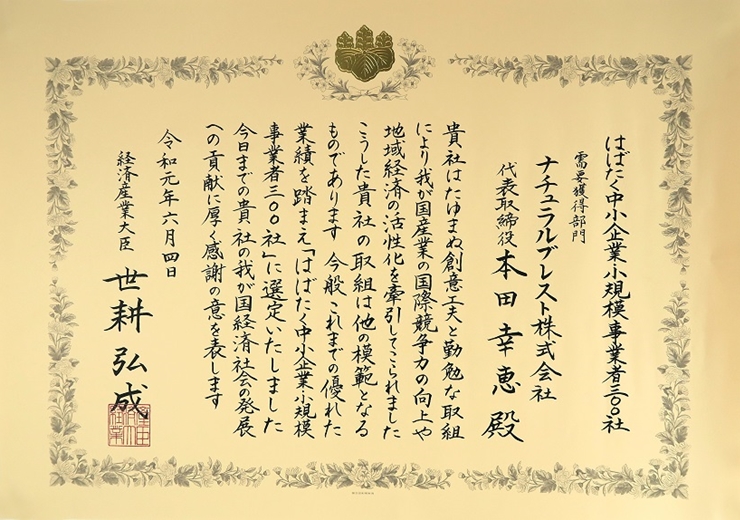 はばたく中小企業小規模事業者三〇〇社
需要獲得部門
ナチュラルブレスト株式会社
代表取締役 本田幸恵 殿
貴社はたゆまぬ創意工夫と勤勉な取組
により我が国産業の国際競争力の向上や
地域経済の活性化を牽引してこられました
こうした貴社の取組は他の模範となる
ものであります 今般 これまでの優れた
業績を踏まえ「はばたく中小企業小規模
事業者三〇〇社」に選定いたしました
今日までの貴社の我が国経済社会の発展
への貢献に厚く感謝の意を表します
令和元年六月四日
経済産業大臣 世耕弘成